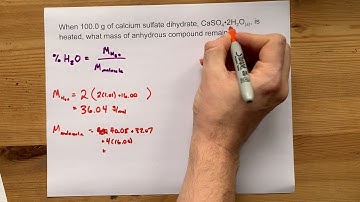 When 100.0 g of calcium sulfate dihydrate, CaSO₄•2H₂O(s), is
heated, what mass of anhydrous compound remai
% H₂O = M H₂O / M molecule
M H₂O = 2 ( 2(1.01) + 16.00 )
= 36.04 g/mol
M molecule = 40.08 + 32.07
+ 4(16.00)
+